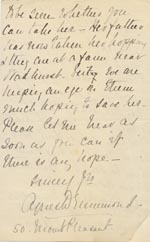 to be seen whether you
can take her — Her father
has been taken her hopping
they are at a farm near
Wadhurst. but we are
keeping an eye on them
much hoping to save her.
Please let me hear as
soon as you can if
there is any hope —
Agnes E. Simmonds.
50. Mount Pleasant